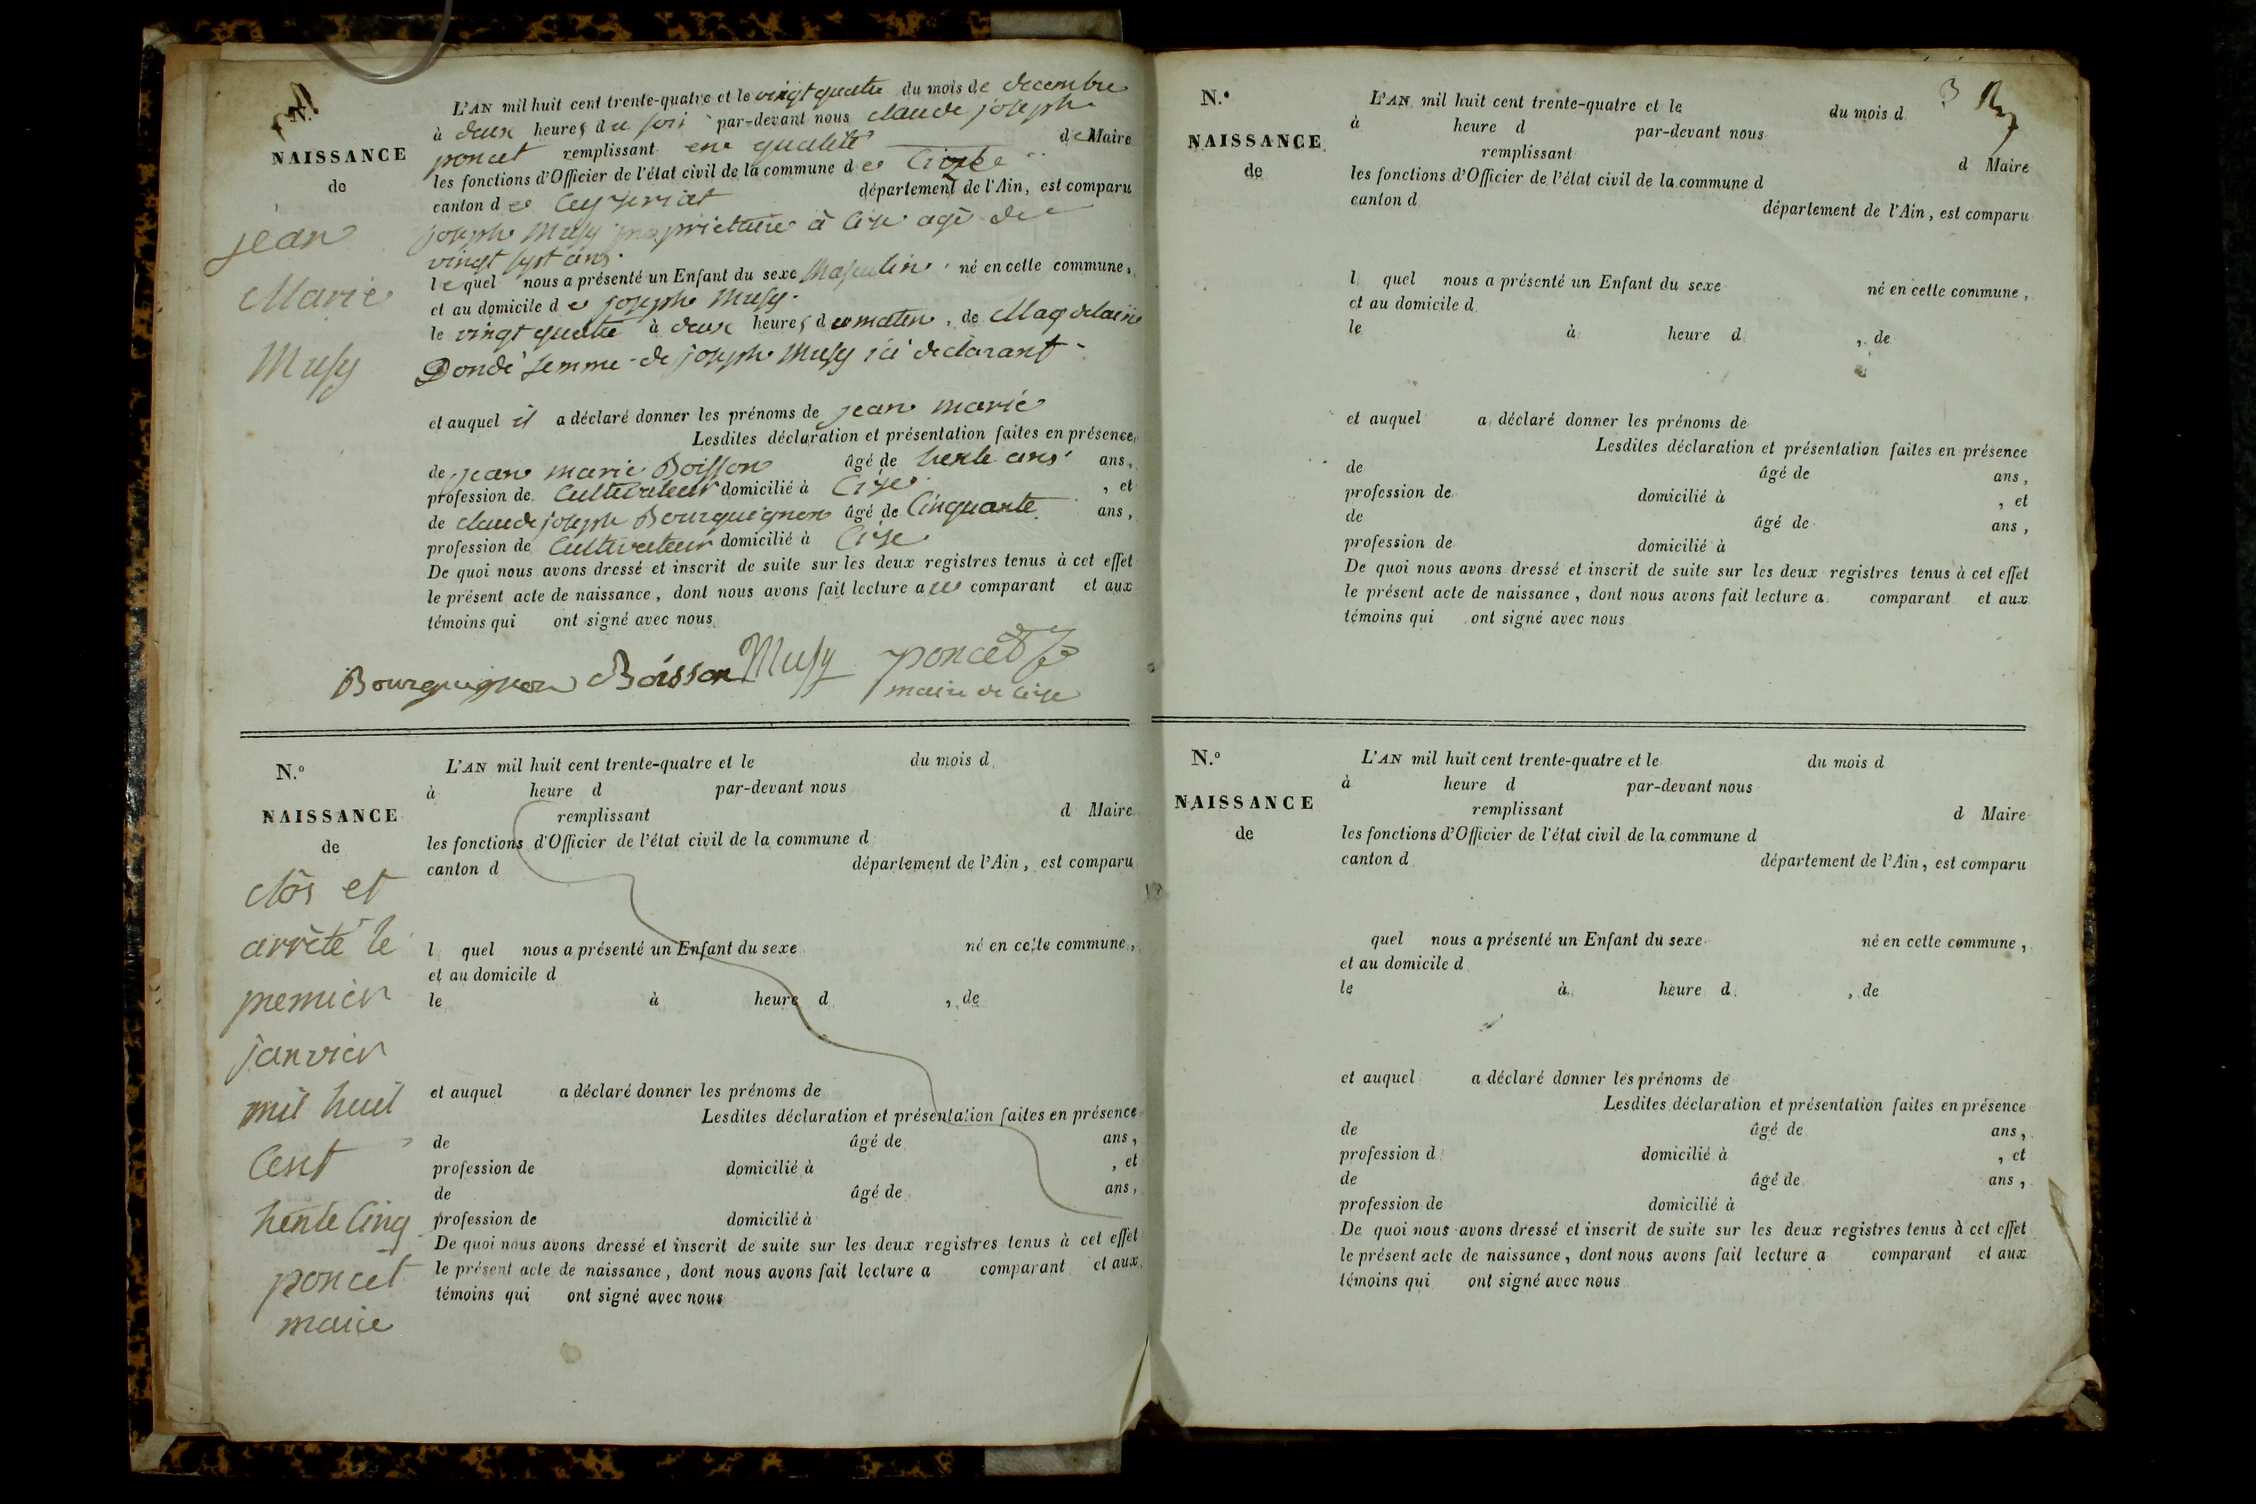 N.º
NAISSANCE
de
jean
Marie
Musy
L'AN mil huit cent trente-quatre et le vingt quatre du mois de decembre
à deux heures du soir par-devant nous claude joseph
poncet remplissant en qualité de Maire
les fonctions d'Officier de l'état civil de la commune de Cize
canton de Ceyzeriat département de l'Ain, est comparu
joseph Musy propriétaire à Cize agé de
vingt sept ans.
lequel nous a présenté un Enfant du sexe Masculin né en cette commune,
et au domicile de joseph Musy.
le vingt quatre à deux heures du matin, de Magdelaine
Dondé femme de joseph Musy ici declarant
et auquel il a déclaré donner les prénoms de jean marie
Lesdites déclaration et présentation faites en présence
de jean marie Boisson âgé de trente ans ans,
profession de Cultivateur domicilié à Cize , et
de claude joseph Bourguignon âgé de Cinquante ans,
profession de Cultivateur domicilié à Cize
De quoi nous avons dressé et inscrit de suite sur les deux registres tenus à cet effet
le présent acte de naissance, dont nous avons fait lecture au comparant et aux
témoins qui ont signé avec nous
Bourguignon Boisson Musy poncet
maire de Cize
N.º
NAISSANCE
de
clos et
arrêté le
premier
janvier
mil huit
Cent
trente Cinq
poncet
maire
L'AN mil huit cent trente-quatre et le du mois d
à heure d par-devant nous
remplissant d Maire
les fonctions d'Officier de l'état civil de la commune d
canton d département de l'Ain, est comparu
l quel nous a présenté un Enfant du sexe né en cette commune,
et au domicile d
le à heure d , de
et auquel a déclaré donner les prénoms de
Lesdites déclaration et présentation faites en présence
de âgé de ans,
profession de domicilié à , et
de âgé de ans,
profession de domicilié à
De quoi nous avons dressé et inscrit de suite sur les deux registres tenus à cet effet
le présent acte de naissance, dont nous avons fait lecture a comparant et aux
témoins qui ont signé avec nous
3
N.º
NAISSANCE
de
L'AN mil huit cent trente-quatre et le du mois d
à heure d par-devant nous
remplissant d Maire
les fonctions d'Officier de l'état civil de la commune d
canton d département de l'Ain, est comparu
l quel nous a présenté un Enfant du sexe né en cette commune,
et au domicile d
le à heure d , de
et auquel a déclaré donner les prénoms de
Lesdites déclaration et présentation faites en présence
de âgé de ans,
profession de domicilié à , et
de âgé de ans,
profession de domicilié à
De quoi nous avons dressé et inscrit de suite sur les deux registres tenus à cet effet
le présent acte de naissance, dont nous avons fait lecture a comparant et aux
témoins qui ont signé avec nous
N.º
NAISSANCE
de
L'AN mil huit cent trente-quatre et le du mois d
à heure d par-devant nous
remplissant d Maire
les fonctions d'Officier de l'état civil de la commune d
canton d département de l'Ain, est comparu
quel nous a présenté un Enfant du sexe né en cette commune,
et au domicile d
le à heure d , de
et auquel a déclaré donner les prénoms de
Lesdites déclaration et présentation faites en présence
de âgé de ans,
profession d domicilié à , et
de âgé de ans,
profession de domicilié à
De quoi nous avons dressé et inscrit de suite sur les deux registres tenus à cet effet
le présent acte de naissance, dont nous avons fait lecture a comparant et aux
témoins qui ont signé avec nous